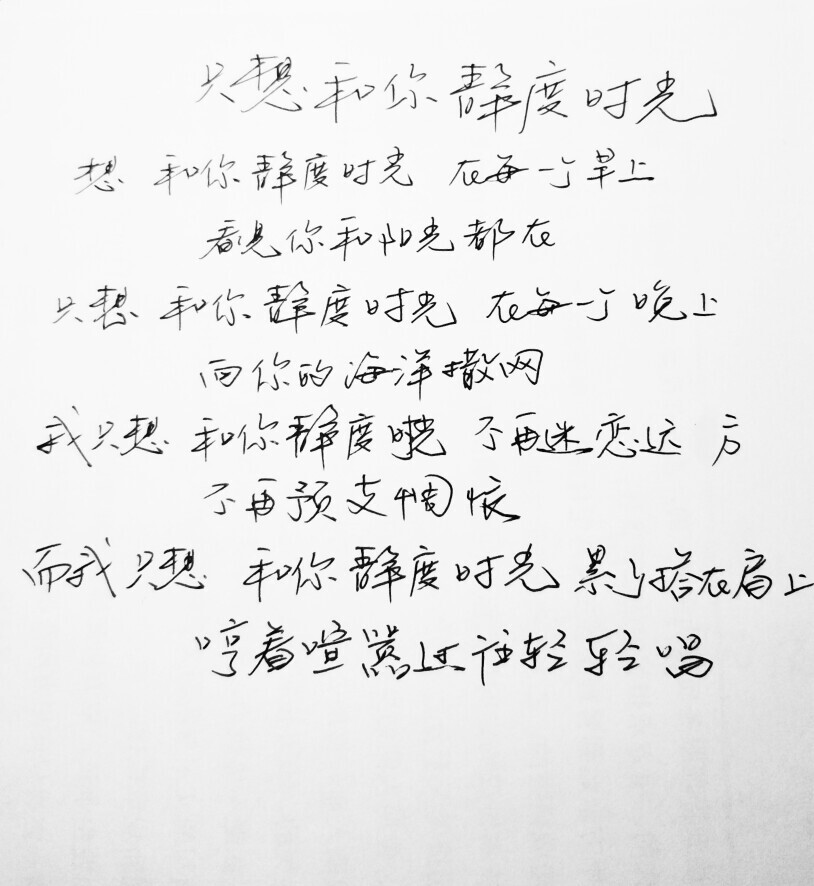 只想和你静度时光
想 和你静度时光 在每一个早上
看见你和阳光都在
只想 和你静度时光 在每一个晚上
向你的海洋撒网
我只想 和你静度时光 不再迷恋远方
不再预支惆怅
而我只想 和你静度时光 累了搭在肩上
哼着喧嚣过往轻轻唱